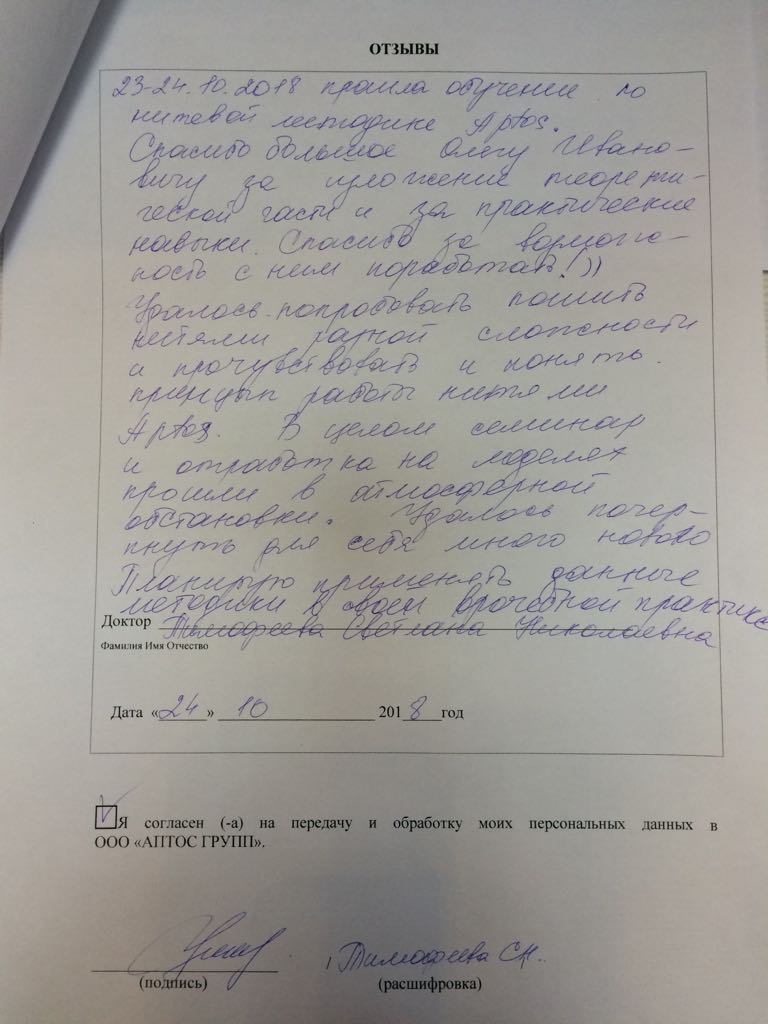 ОТЗЫВЫ
23-24.10.2018 прошла обучение по
нитевой методике Aptos.
Спасибо большое Олегу Ивано-
вичу за изложение теорети-
ческой части и за практические
навыки. Спасибо за возмож-
ность с ним поработать!))
Удалось попробовать пошить
нитями разной сложности
и прочувствовать и понять
принцып работы нитями
Aptos. В целом семинар
и отработка на моделях
прошли в атмосферной
обстановки. Удалось почер-
пнуть для себя много нового
Планирую применять данные
методики в своей врачебной практике
Доктор Тимофеева Светлана Николаевна
Фамилия Имя Отчество
Дата «24» 10 2018 год
V Я согласен (-а) на передачу и обработку моих персональных данных в
ООО «АПТОС ГРУПП».
Тимофеева С.Н.
(подпись) (расшифровка)